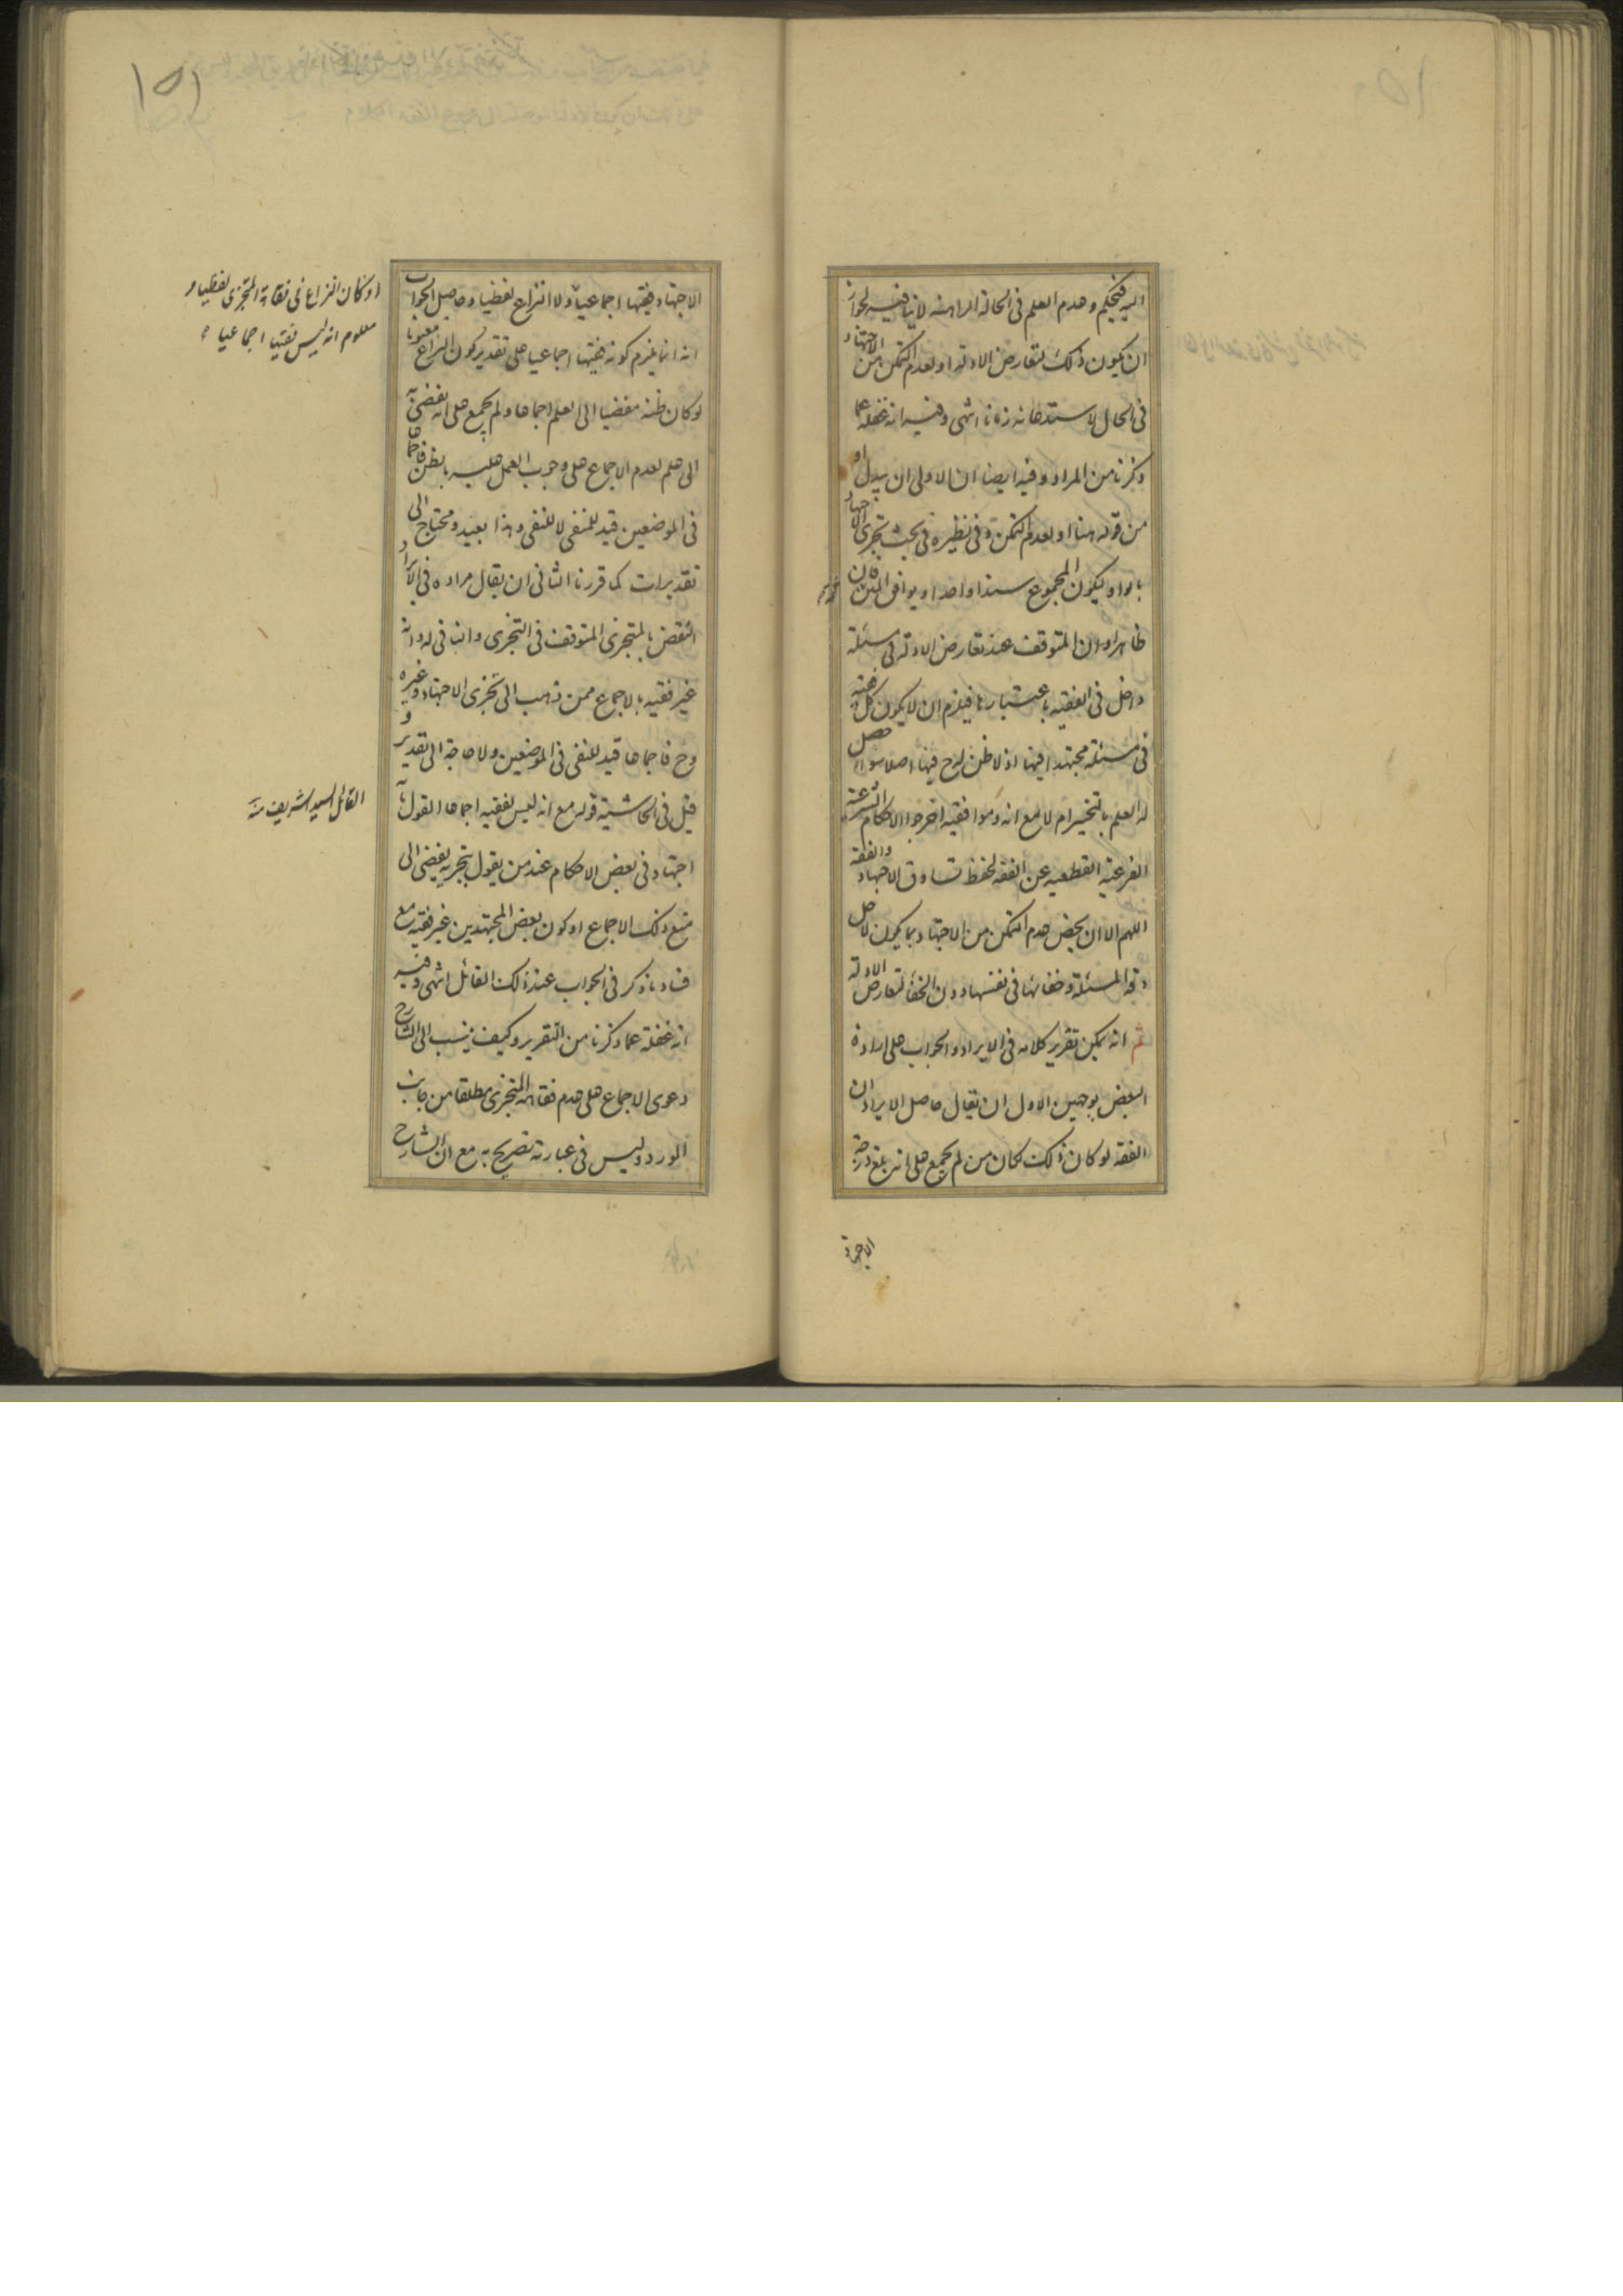 اليه فيحكم وعدم العلم في الحالة الراهنة لا ينافيه لجواز
ان يكون ذلك لتعارض الادلة او لعدم التمكن من الاجتهاد
في الحال لاستدعائه زمانا انتهى وفيه انه غفلة عما
ذكرنا من المراد وفيه ايضا ان الاولى ان يبدل او
من قوله هنا او لعدم التمكن وفي نظيره في بحث تجزي الاجتهاد
بالواو ليكون المجموع سندا واحدا ويوافق المتن فان
ظاهره ان المتوقف عند تعارض الادلة في مسئلة
داخل في الفقيه باعتبارها فيلزم ان لا يكون كل فقيه
في مسئلة مجتهدا فيها اذ لا ظن له ح فيها اصلا سواء حصل
له العلم بالتخيير ام لا مع انه وموافقيه اخرجوا الاحكام الشرعية
الفرعية القطعية عن الفقه لحفظ تساوق الاجتهاد والفقه
اللهم الا ان يخص عدم التمكن من الاجتهاد بما يكون لاجل
دقة المسئلة وخفائها في نفسها دون الخفاء لتعارض الادلة
ثم انه يمكن تقرير كلامه في الايراد والجواب على ارادة
البعض بوجهين الاول ان يقال حاصل الايراد ان
الفقه لو كان ذلك لكان من لم يجمع على انه بلغ درجة
الاجتهاد
الاجتهاد فقيها اجماعيا ولا النزاع لفظيا وحاصل الجواب
انه انما يلزم كونه فقيها اجماعيا على تقدير كون النزاع معنويا
لو كان ظنه مفضيا الى العلم اجماعا ولم يجمع على انه يفضي به
الى علم لعدم الاجماع على وجوب العمل عليه بالظن فاجماعا
في الموضعين قيد للمنفي لا للنفي وهذا بعيد ومحتاج الى
تقديرات كما قررنا الثاني ان يقال مراده في الايراد
النقض بالمتجزي المتوقف في التجزي والنافي له وانه
غير فقيه بالاجماع ممن ذهب الى تجزي الاجتهاد وغيره
وح فاجماعا قيد للنفي في الموضعين ولا حاجة الى تقدير و
قيل في الحاشية قوله مع انه ليس بفقيه اجماعا القول بانه
اجتهاد في بعض الاحكام عند من يقول بتجزيه يفضي الى
منع ذلك الاجماع او كون بعض المجتهدين غير فقيه مع
فساد ما ذكر في الجواب عند ذلك القائل انتهى وفيه
انه غفلة عما ذكرنا من التقرير وكيف ينسب الى الشارح
دعوى الاجماع على عدم فقاهة المتجزي مطلقا من جانب
المورد وليس في عبارته تصريح به مع ان الشارح
او كان النزاع في فقاهة المتجزي لفظيا و
معلوم انه ليس فقيها اجماعيا
القائل السيد الشريف منه